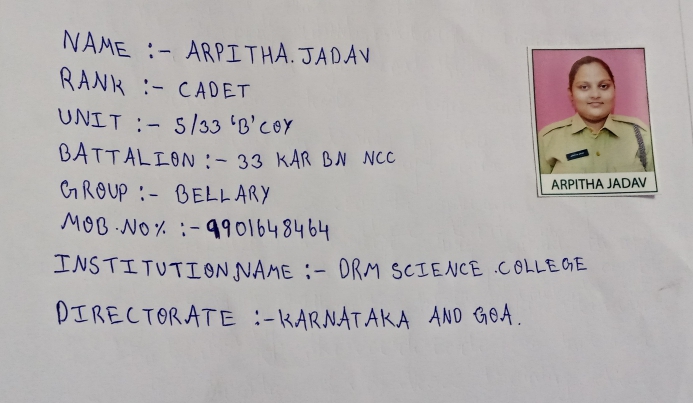 NAME :- ARPITHA.JADAV
RANK :- CADET
UNIT :- 5/33 'B' COY
BATTALION :- 33 KAR BN NCC
GROUP :- BELLARY
MOB.NO% :- 9901648464
INSTITUTION NAME :- DRM SCIENCE .COLLEGE
DIRECTORATE :- KARNATAKA AND GOA.
ARPITHA JADAV